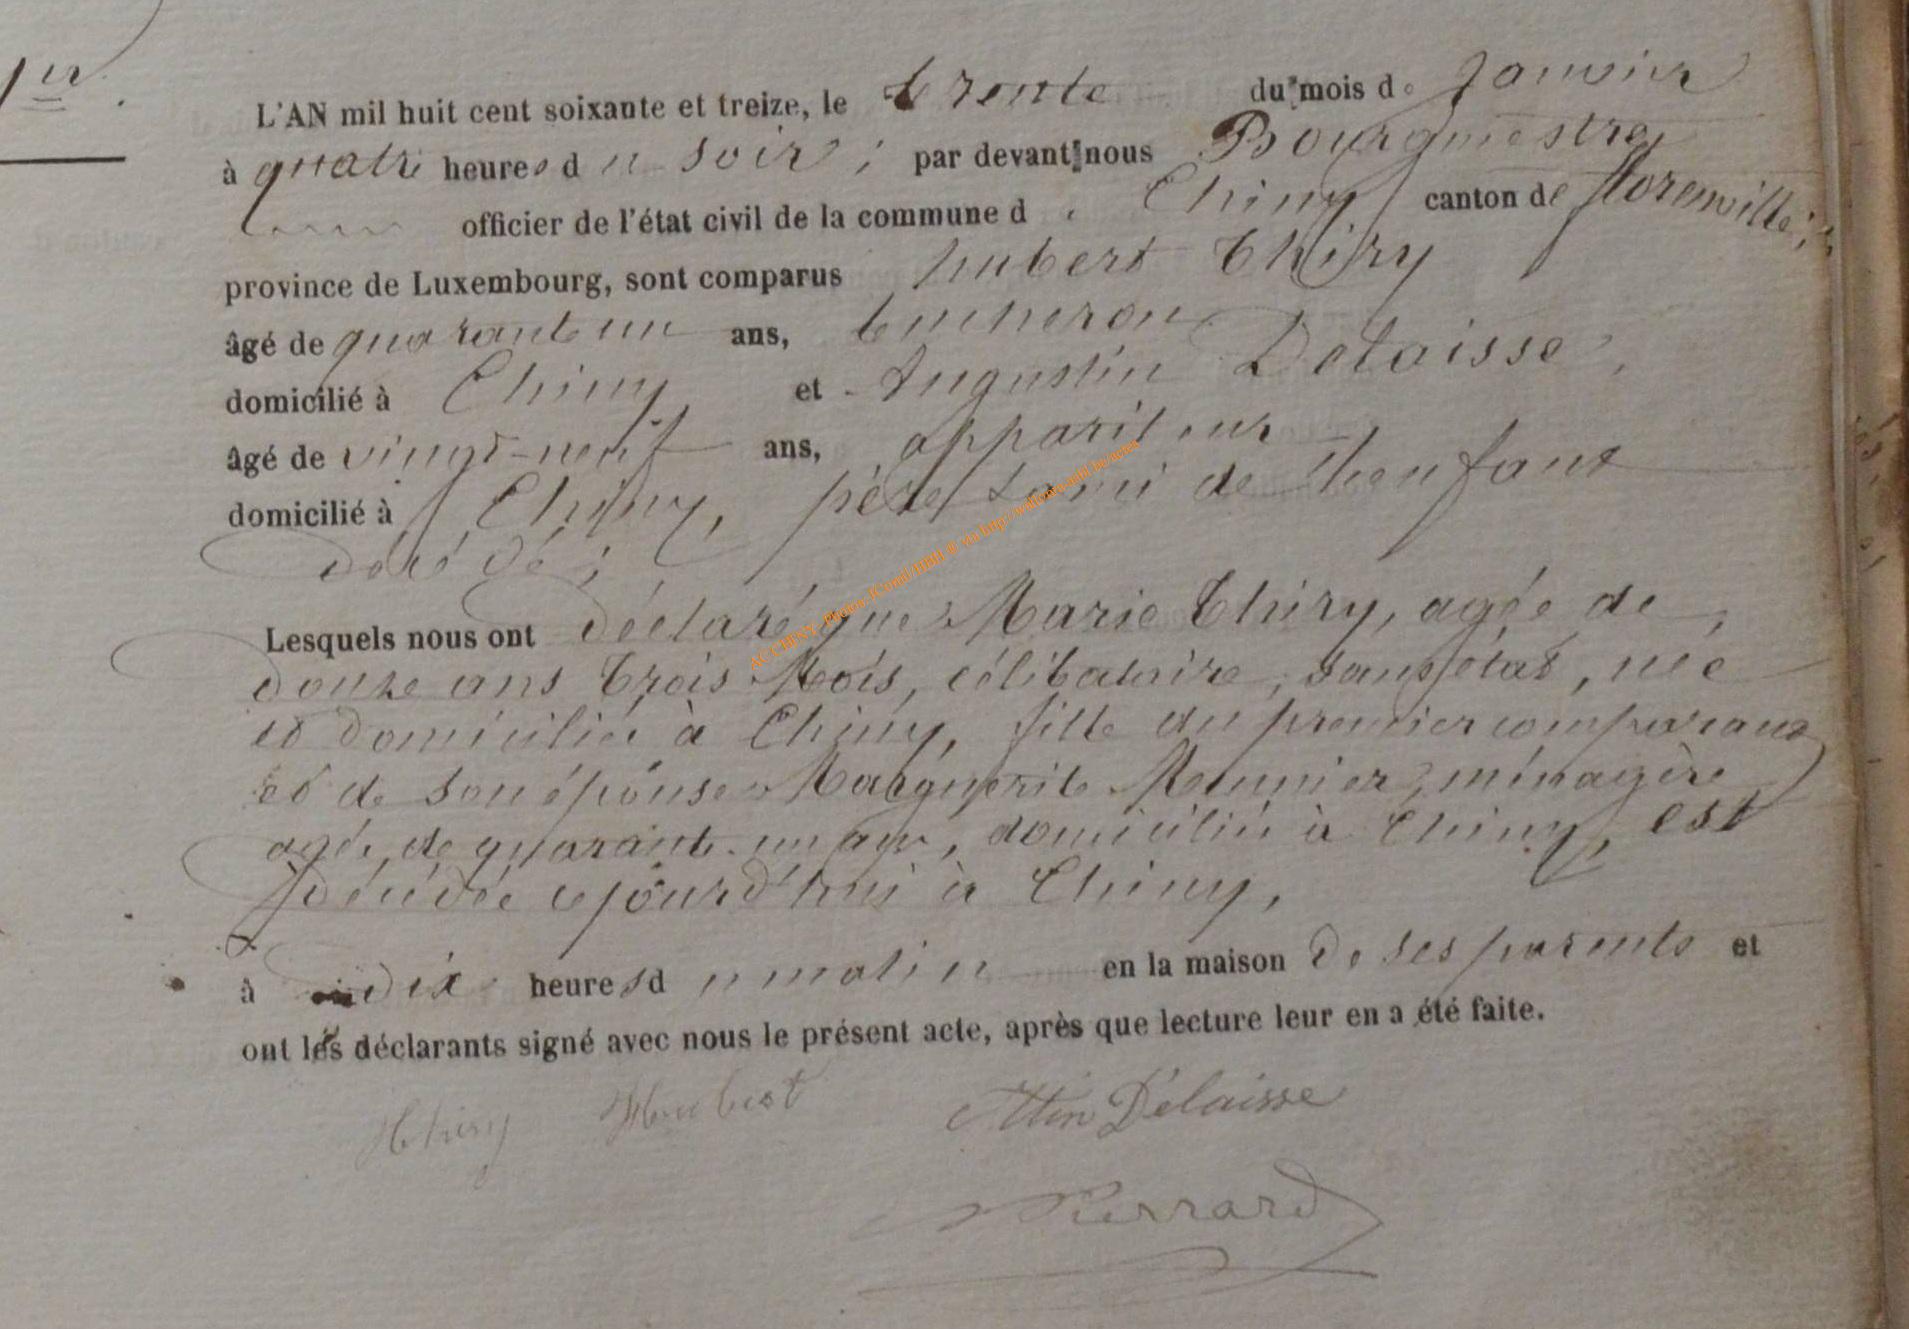 1er.
L'AN mil huit cent soixante et treize, le trente du mois de Janvier
à quatre heures du soir, par devant nous Bourgmestre,
officier de l'état civil de la commune de Chiny canton de florenville,
province de Luxembourg, sont comparus hubert Thiry
âgé de quarante un ans, bucheron
domicilié à Chiny et Augustin Delaisse,
âgé de vingt-neuf ans, appariteur
domicilié à Chiny, père & ami de l'enfant
décédé;
Lesquels nous ont déclaré que Marie Thiry, agée de
douze ans trois Mois, célibataire, sans état, née
et domiciliée à Chiny, fille du premier comparant
et de son épouse Marguerite Meunier, ménagère
agée de quarante-un ans, domiciliée à Chiny, est
décédée cejourd'hui à Chiny,
à dix heures du matin en la maison de ses parents et
ont les déclarants signé avec nous le présent acte, après que lecture leur en a été faite.
Thiry Hubert Attin Delaisse
Pierrard
AC CHINY - Photos JComil/HBH © via http://wallonia-asbl.be/actes